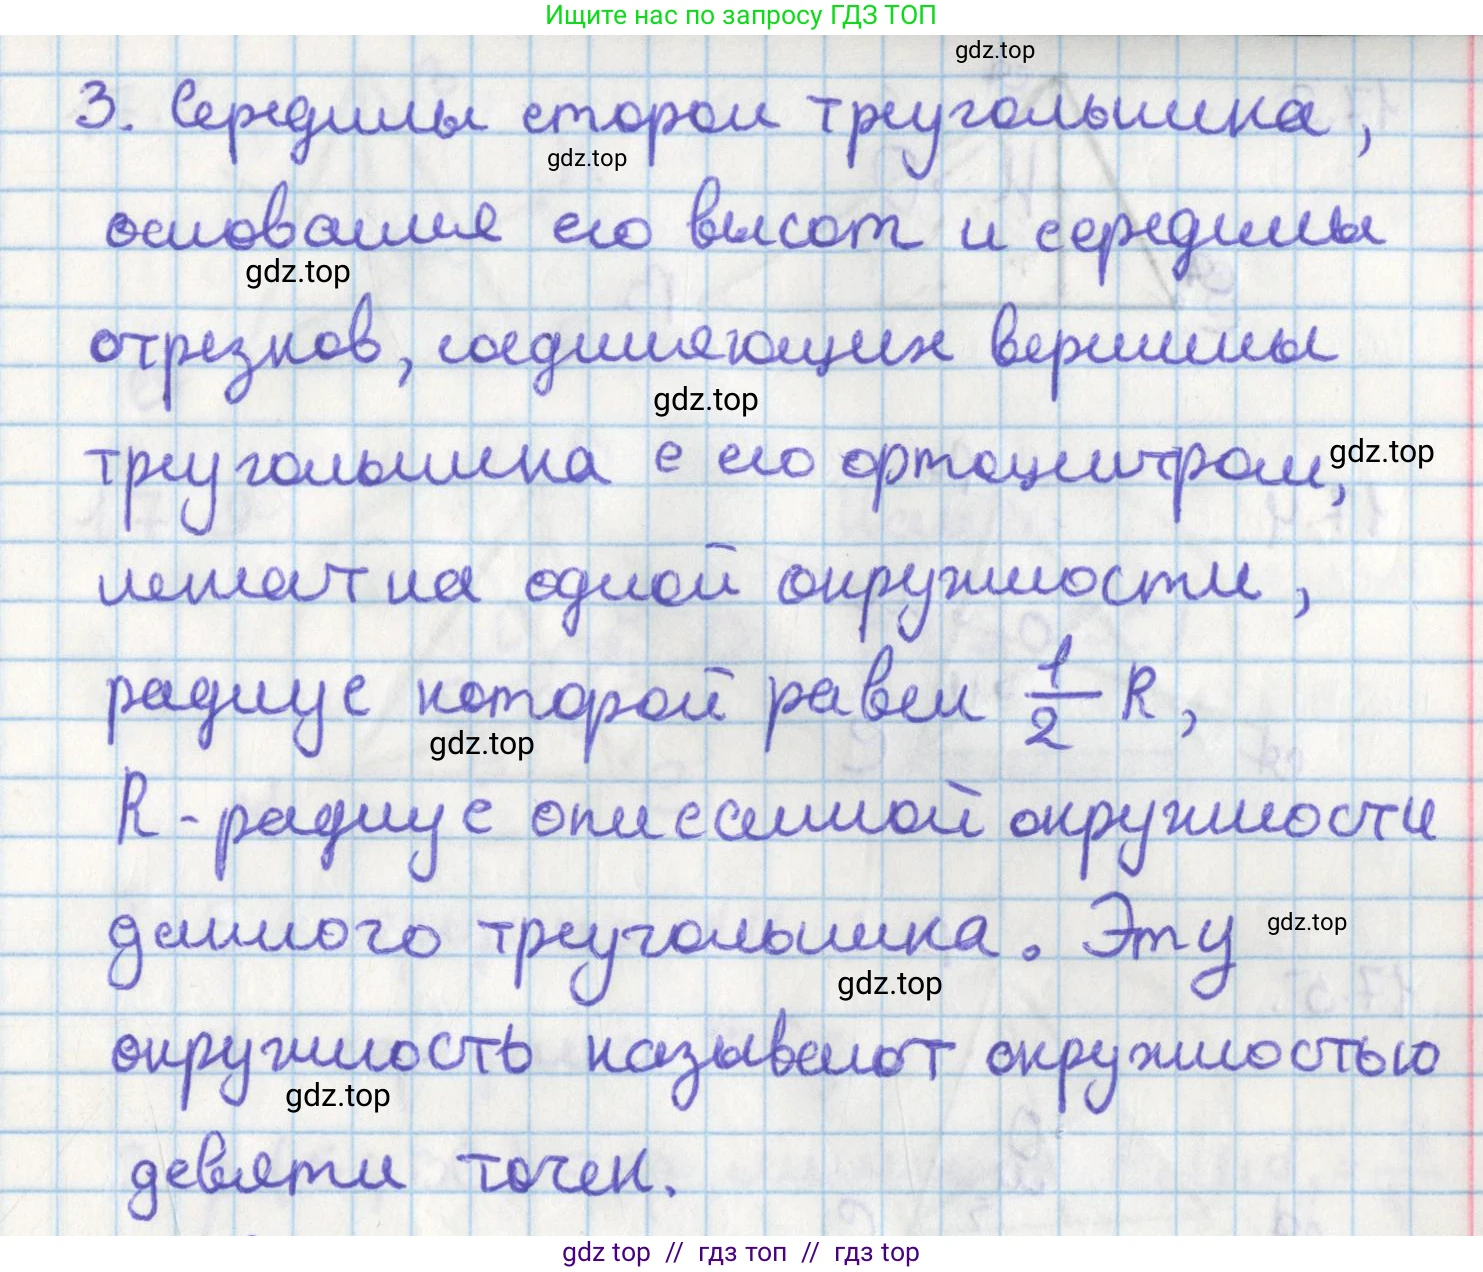 Ищите нас по запросу ГДЗ ТОП
gdz.top
3. Середины сторон треугольника,
gdz.top
основания его высот и середины
gdz.top
отрезков, соединяющих вершины
gdz.top
треугольника с его ортоцентром,
gdz.top
лежат на одной окружности,
радиус которой равен 1/2 R,
gdz.top
R - радиус описанной окружности
данного треугольника. Эту
gdz.top
gdz.top
окружность называют окружностью
gdz.top
девяти точек.
gdz top // гдз топ // гдз top